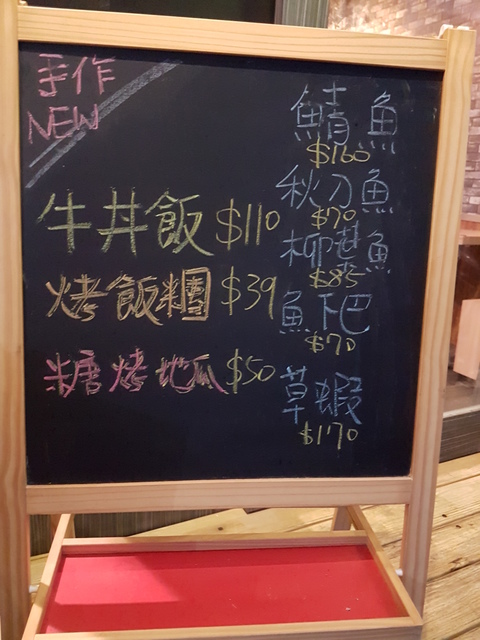 手作
NEW
牛丼飯 $110
烤飯糰 $39
糖烤地瓜 $50
鯖魚
$160
秋刀魚
$70
柳葉魚
$85
魚下巴
$70
草蝦
$170